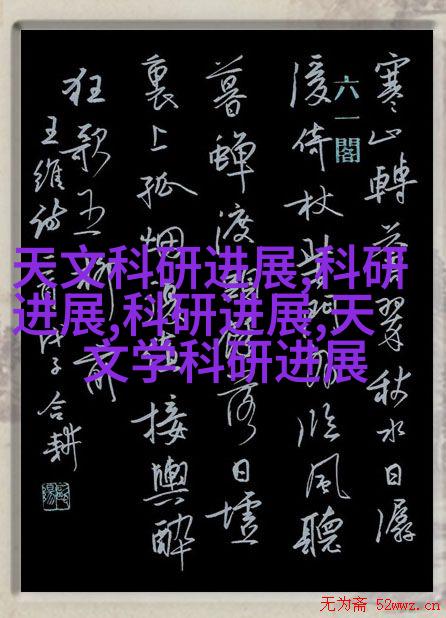 寒山轉蒼翠秋水日潺
六一閣
湲倚杖柴門外臨風聽
暮蟬渡頭餘落日墟
裏上孤烟復值接輿醉
狂歌五柳前
王維詩一首戊子合耕
天文科研进展,科研
进展,科研进展,天
文学科研进展
无为斋 52wwz.cn